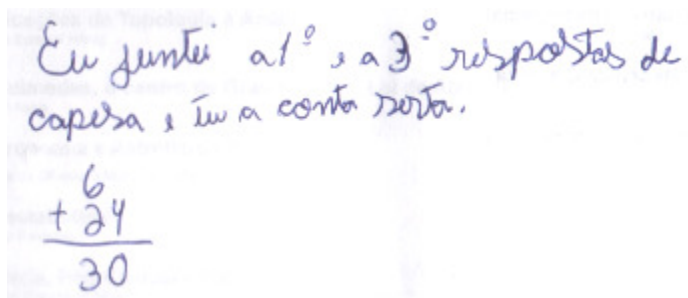 Eu juntei a 1º e a 3º respostas de
capesa e teu a conta serta.
6
+ 24
30